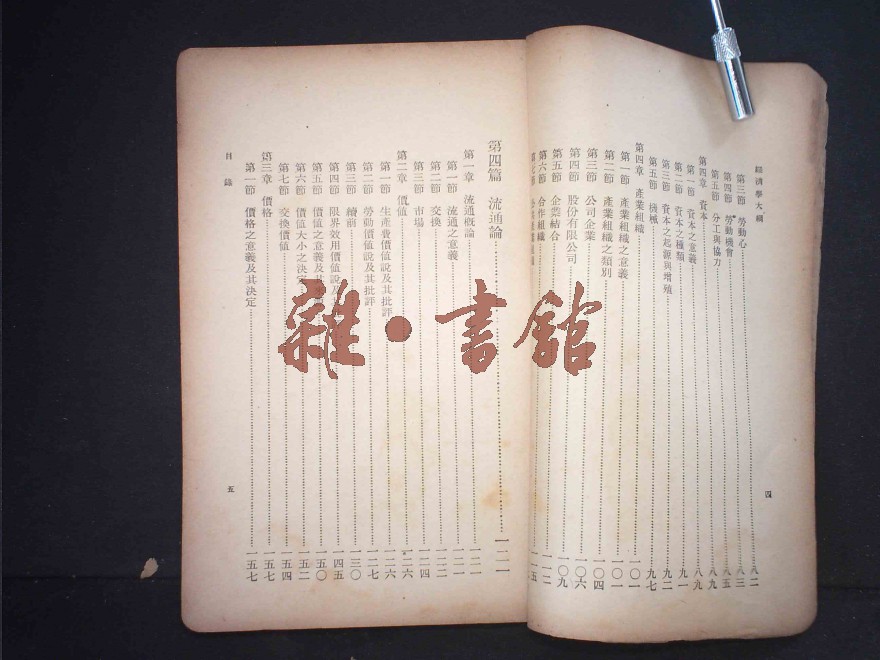 經濟學大綱
第三節 勞動心 八二
第四節 勞動機會 八三
第五節 分工與協力 八五
第四章 資本 八九
第一節 資本之意義 八九
第二節 資本之種類 九一
第三節 資本之起源與增殖 九二
第五節 機械 九七
第四章 產業組織 一〇一
第一節 產業組織之意義 一〇一
第二節 產業組織之類別 一〇一
第三節 公司企業 一〇四
第四節 股份有限公司 一〇六
第五節 企業結合 一〇九
第六節 合作組織 一一二
四
第四篇 流通論 一二一
第一章 流通概論 一二一
第一節 流通之意義 一二一
第二節 交換 一二二
第三節 市場 一二四
第二章 價值 一二六
第一節 生產費價值說及其批評 一二六
第二節 勞動價值說及其批評 一二七
第三節 續前 一三〇
第四節 限界效用價值說及其 一四五
第五節 價值之意義及其 一五〇
第六節 價值大小之決定 一五二
第七節 交換價值 一五四
第三章 價格 一五七
第一節 價格之意義及其決定 一五七
目錄
五
雜·書館